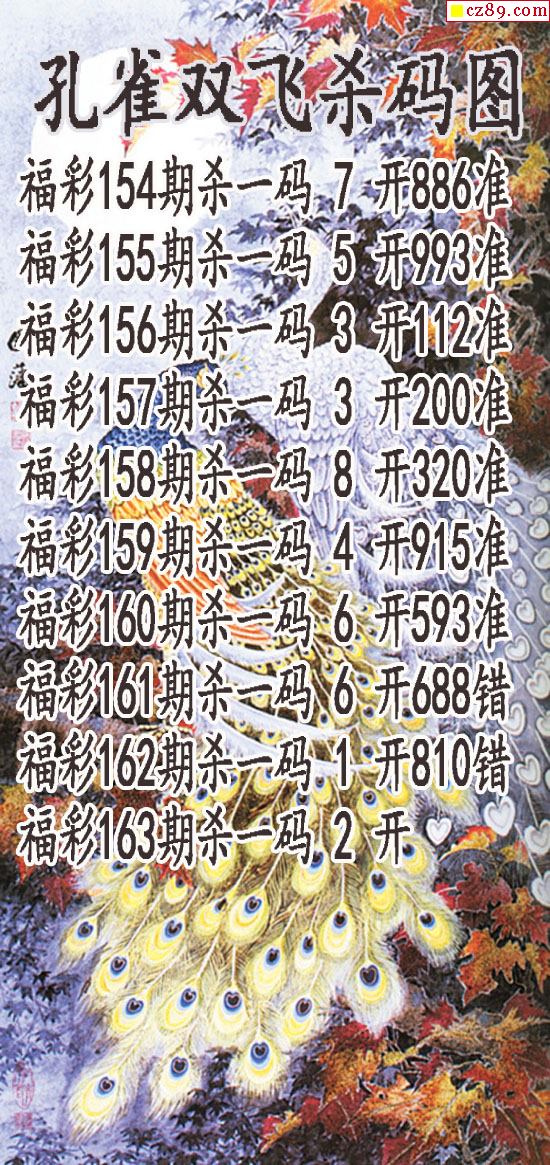 cz89.com
孔雀双飞杀码图
福彩154期杀一码 7 开886准
福彩155期杀一码 5 开993准
福彩156期杀一码 3 开112准
福彩157期杀一码 3 开200准
福彩158期杀一码 8 开320准
福彩159期杀一码 4 开915准
福彩160期杀一码 6 开593准
福彩161期杀一码 6 开688错
福彩162期杀一码 1 开810错
福彩163期杀一码 2 开